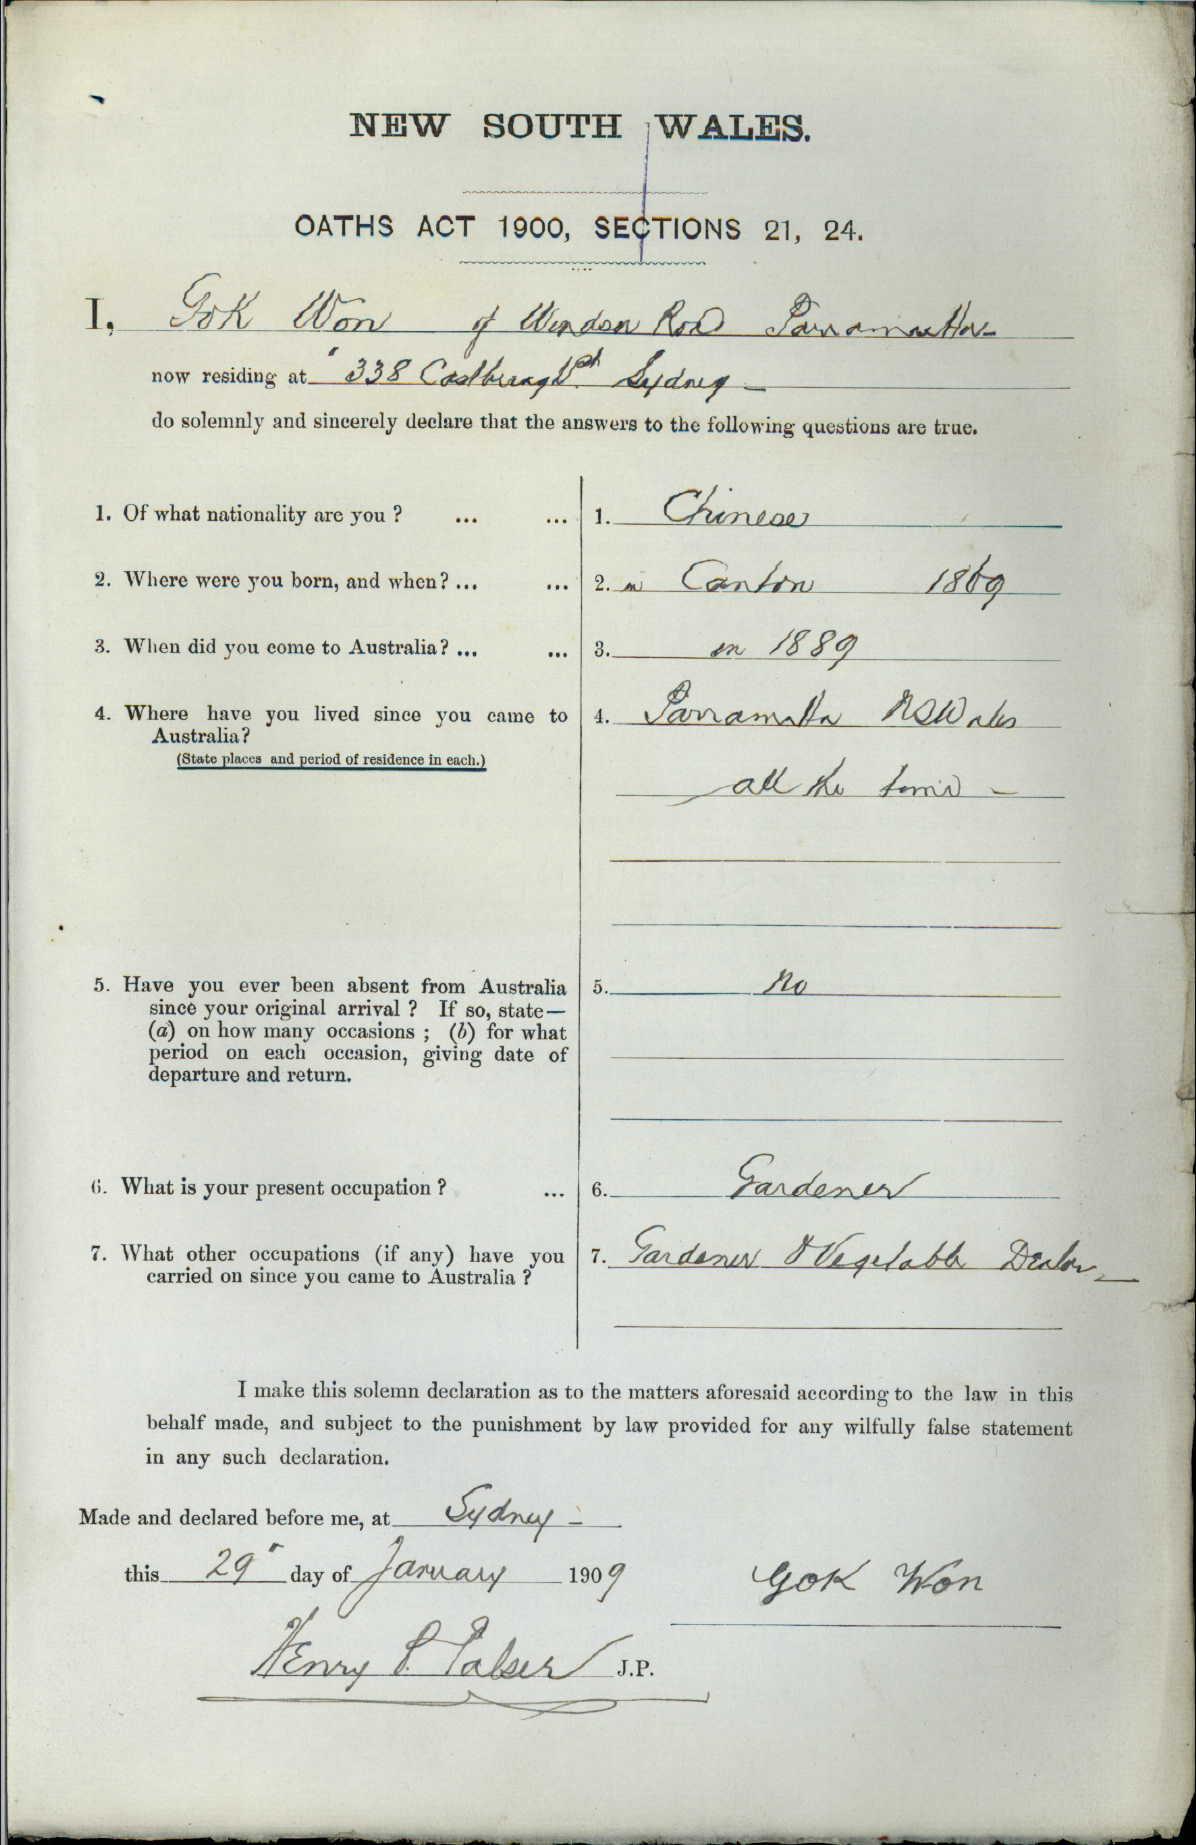 NEW SOUTH WALES.
OATHS ACT 1900, SECTIONS 21, 24.
I, Gok Won of Windsor Road Parramatta
now residing at 338 Castlereagh St. Sydney —
do solemnly and sincerely declare that the answers to the following questions are true.
1. Of what nationality are you ? ... ... 1. Chinese
2. Where were you born, and when? ... ... 2. in Canton 1869
3. When did you come to Australia? ... ... 3. in 1889
4. Where have you lived since you came to 4. Parramatta NSWales
Australia?
(State places and period of residence in each.)
all the time —
5. Have you ever been absent from Australia 5. No
since your original arrival ? If so, state—
(a) on how many occasions ; (b) for what
period on each occasion, giving date of
departure and return.
6. What is your present occupation ? ... 6. Gardener
7. What other occupations (if any) have you 7. Gardener & Vegetable Dealer —
carried on since you came to Australia ?
I make this solemn declaration as to the matters aforesaid according to the law in this
behalf made, and subject to the punishment by law provided for any wilfully false statement
in any such declaration.
Made and declared before me, at Sydney —
this 29" day of January 1909
GOK Won
Henry P. Palser J.P.